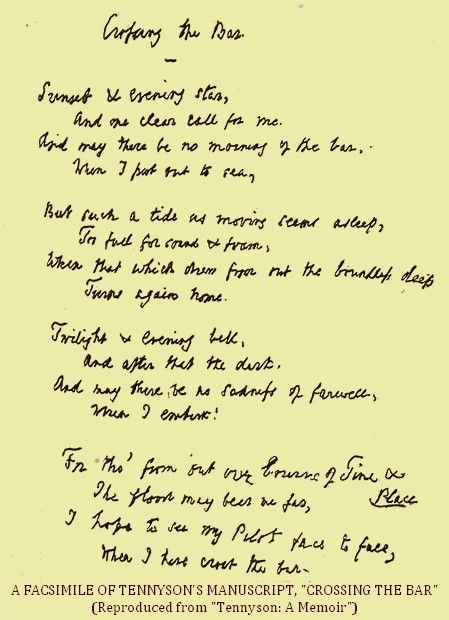 Crossing the Bar.
Sunset & evening star,
And one clear call for me.
And may there be no moaning of the bar,
When I put out to sea,
But such a tide as moving seems asleep,
Too full for sound & foam,
When that which drew from out the boundless deep
Turns again home.
Twilight & evening bell,
And after that the dark.
And may there be no sadness of farewell,
When I embark!
For tho' from out our bourne of Time &
Place
The flood may bear me far,
I hope to see my Pilot face to face,
When I have crost the bar.
A FACSIMILE OF TENNYSON'S MANUSCRIPT, "CROSSING THE BAR"
(Reproduced from "Tennyson: A Memoir")